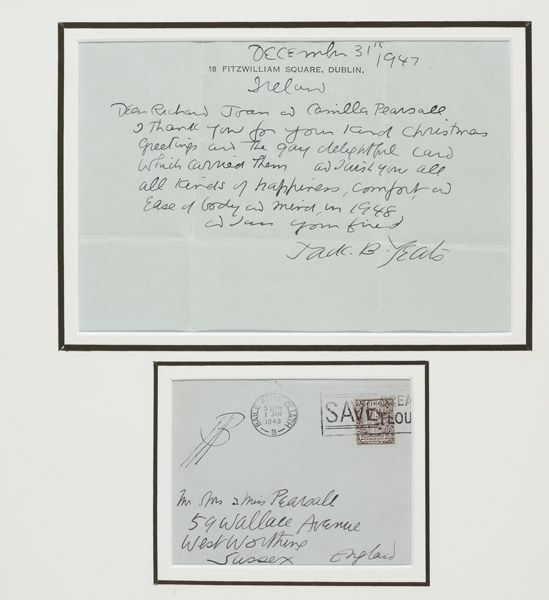 DECEmber 31st 1947
18 FITZWILLIAM SQUARE, DUBLIN.
Ireland
Dear Richard Joan and Camilla Pearsall
I thank you for your kind Christmas
Greetings and the gay delightful card
which carried them and I wish you all
all kinds of happiness, comfort, and
Ease of body and mind, in 1948
and I am your friend
Jack. B. Yeats
BAILE ÁTHA CLIATH
1 JAN
1948
B
SAVE BREA
FLOU
Mr Mrs & Miss Pearsall
59 Wallace Avenue
West Worthing
Sussex England